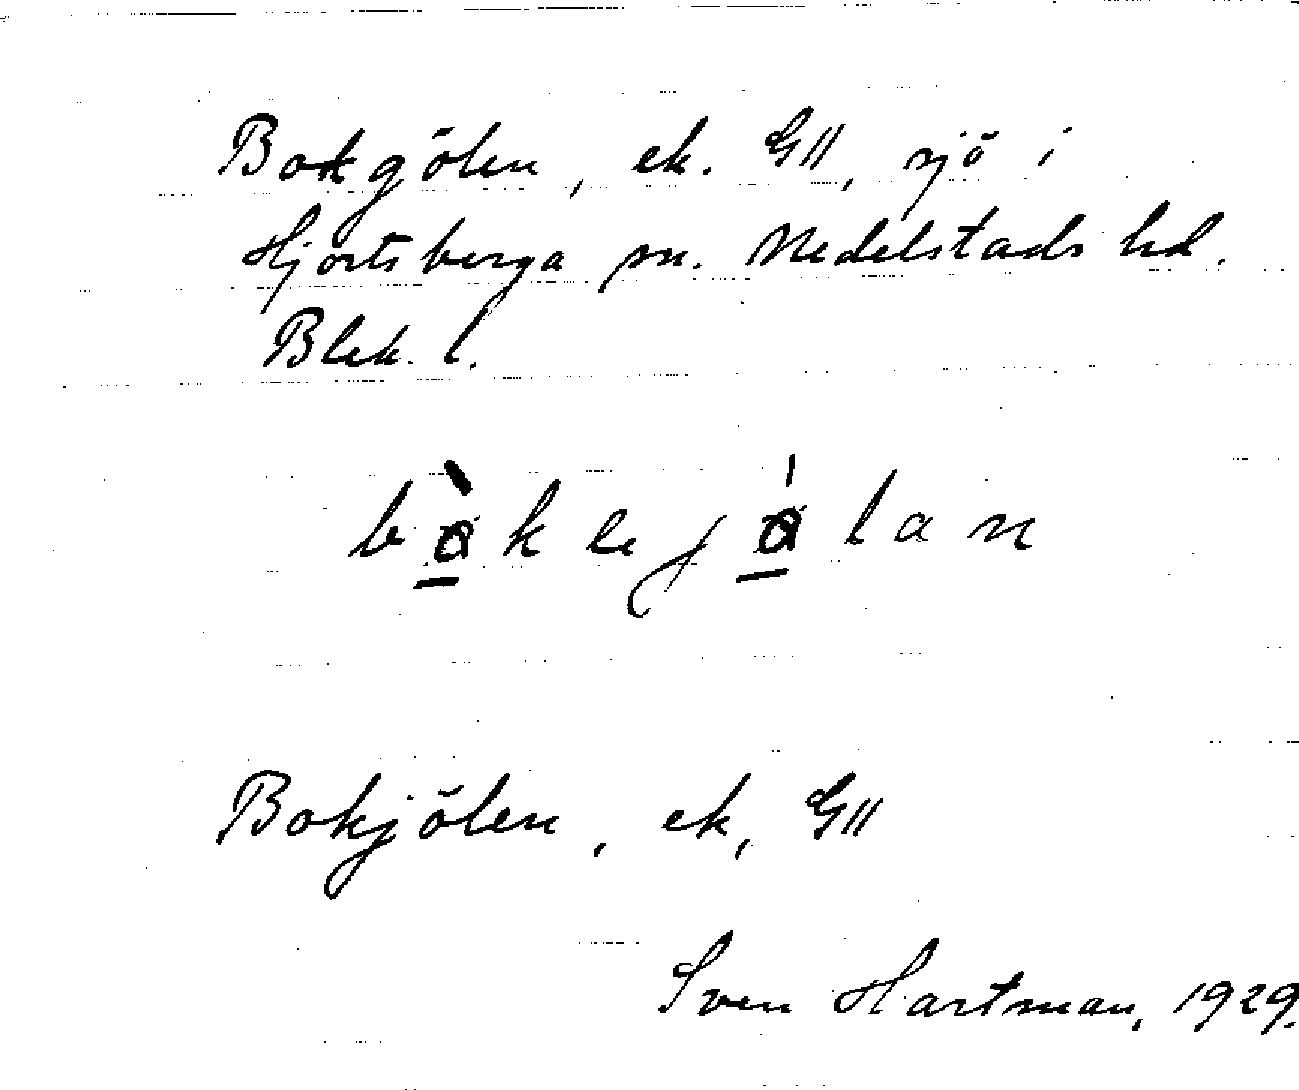 Bokgölen, ek. G11, sjö i
Hjortsberga sn. Medelstads hd.
Blek. l.
Bokjölen, ek, G11
Sven Hartman, 1929.